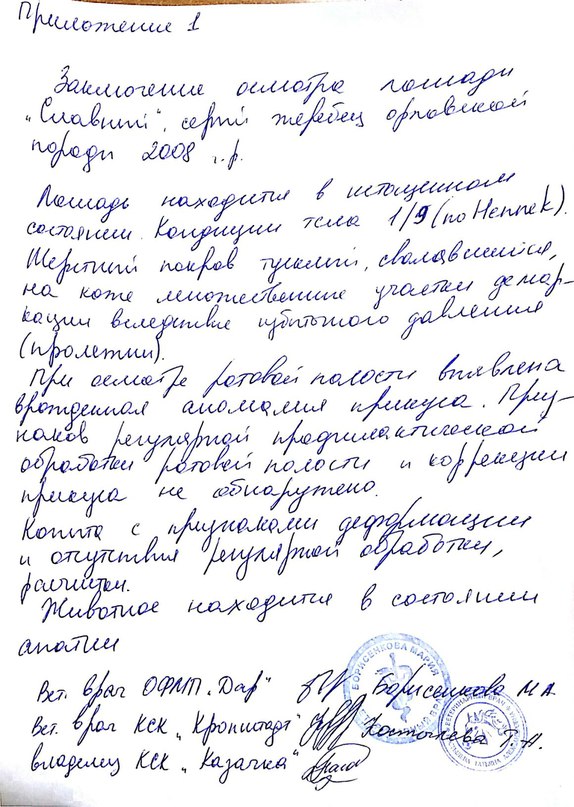 Приложение 1
Заключение осмотра лошади
"Славный", серый жеребец орловской
породы 2008 г.р.
Лошадь находится в истощенном
состоянии. Кондиции тела 1/9 (по Hennek).
Шерстный покров тусклый, свалявшийся,
на коже множественные участки демар-
кации вследствие избыточного давления
(пролежни).
При осмотре ротовой полости выявлена
врожденная аномалия прикуса. Приз-
наков регулярной профилактической
обработки ротовой полости и коррекции
прикуса не обнаружено.
Копыта с признаками деформации
и отсутствия регулярной обработки,
расчистки.
Животное находится в состоянии
апатии
Вет. врач ОФМП "Дар" Борисенкова М.А.
Вет. врач КСК "Кронштадт" Т.Н.
владелец КСК "Казачка"
БОРИСЕНКОВА МАРИЯ